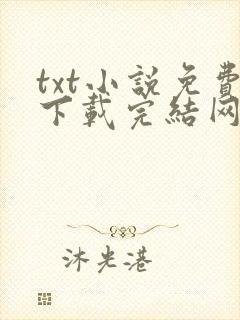 txt小說免費
下載完結网
沐光港